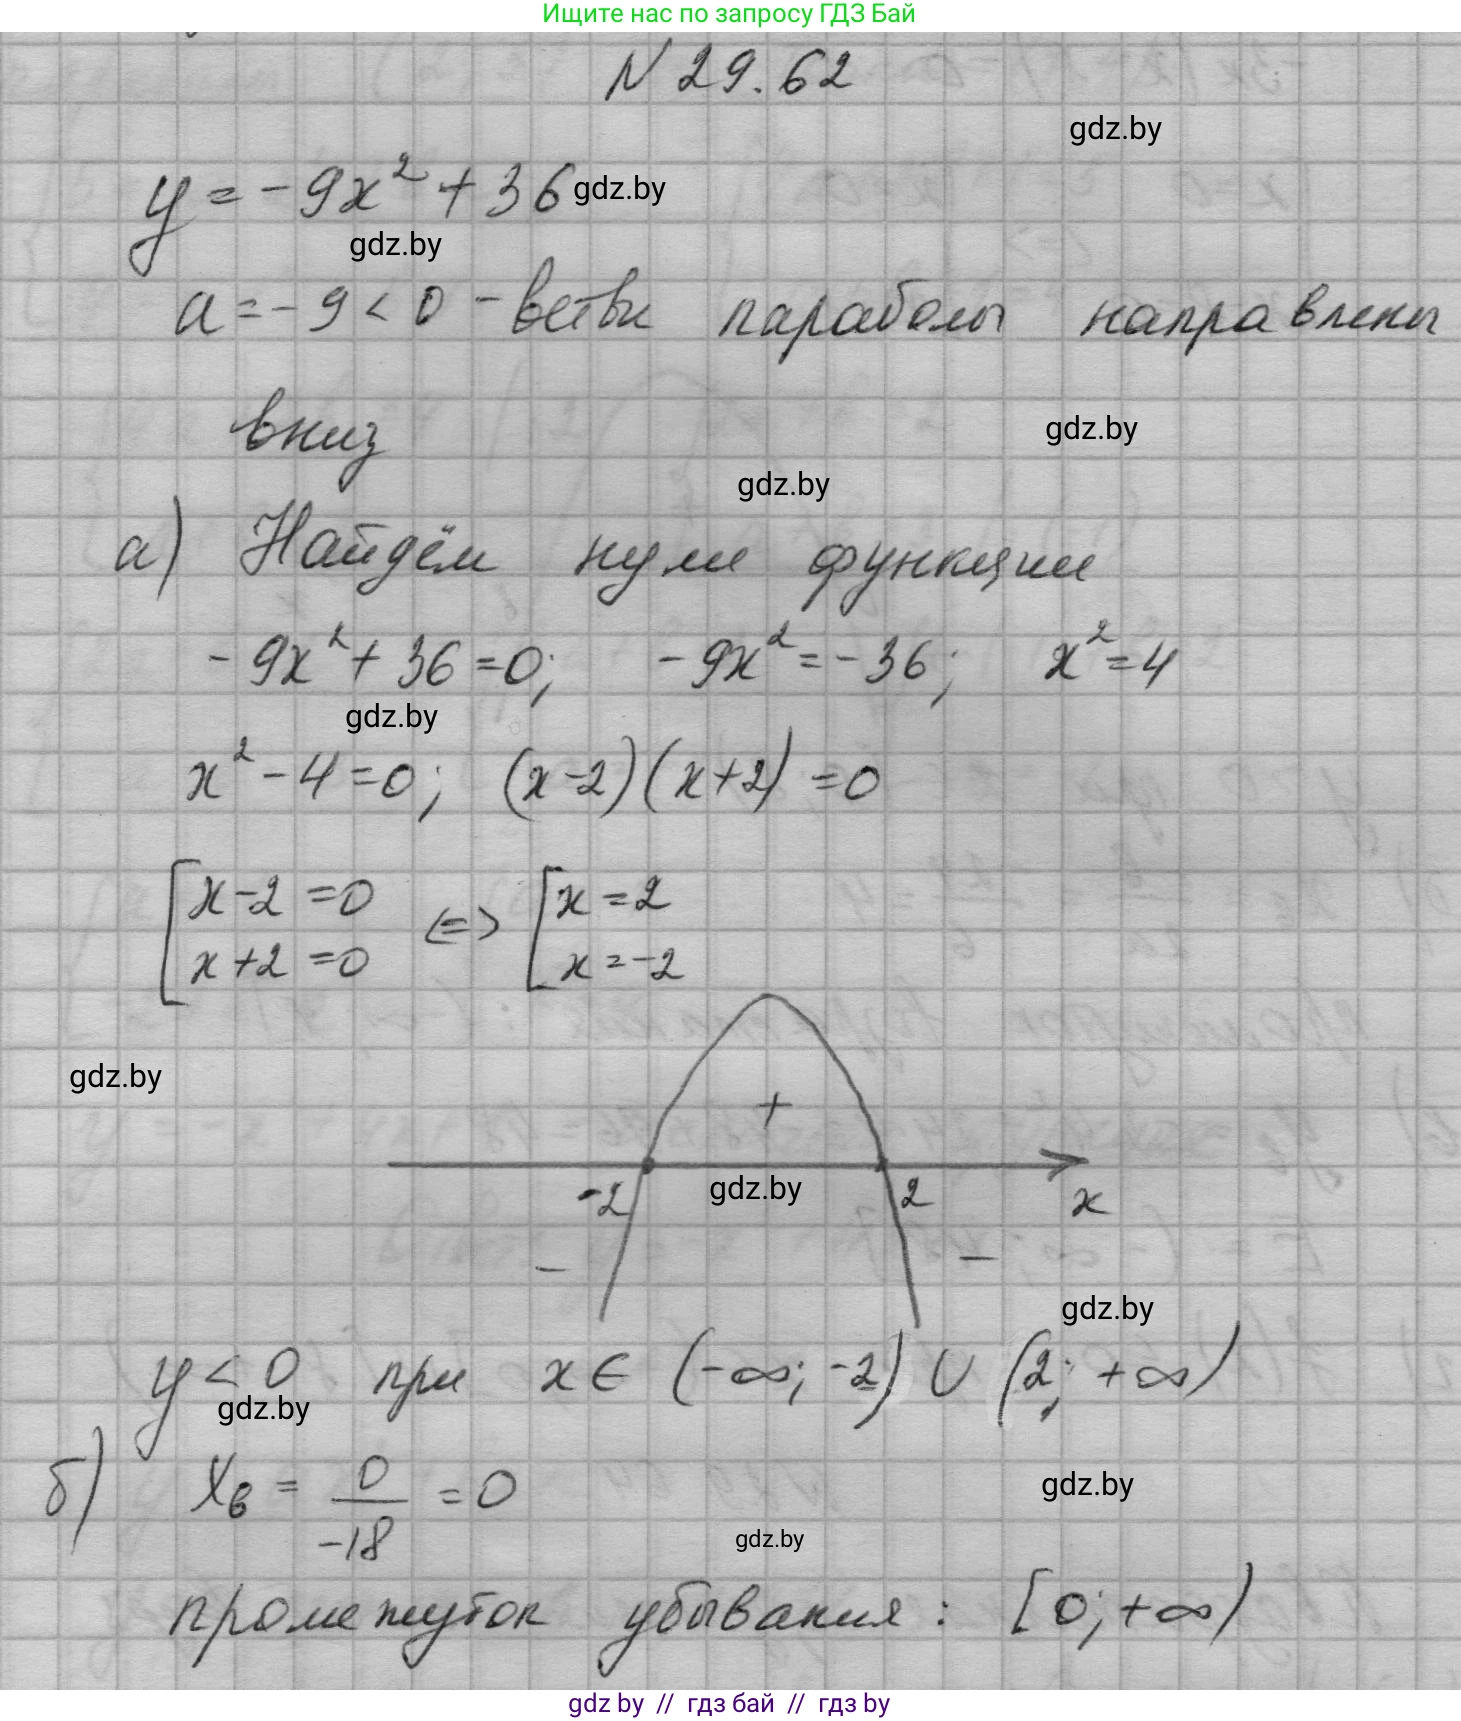 Ищите нас по запросу ГДЗ Бай
N 29.62
gdz.by
y = -9x² + 36 gdz.by
gdz.by
a = -9 < 0 - ветви параболы направлены
вниз
gdz.by
gdz.by
а) Найдём нули функции
-9x² + 36 = 0; -9x² = -36; x² = 4
gdz.by
x² - 4 = 0; (x-2)(x+2) = 0
[x-2 = 0 <=> [x = 2
x+2 = 0 x = -2
gdz.by
+
-2 gdz.by 2 x
- -
gdz.by
y < 0 при x ∈ (-∞; -2) ∪ (2; +∞)
gdz.by
б) Xв = 0/-18 = 0
gdz.by
gdz.by
промежуток убывания: [0; +∞)
gdz by // гдз бай // гдз by